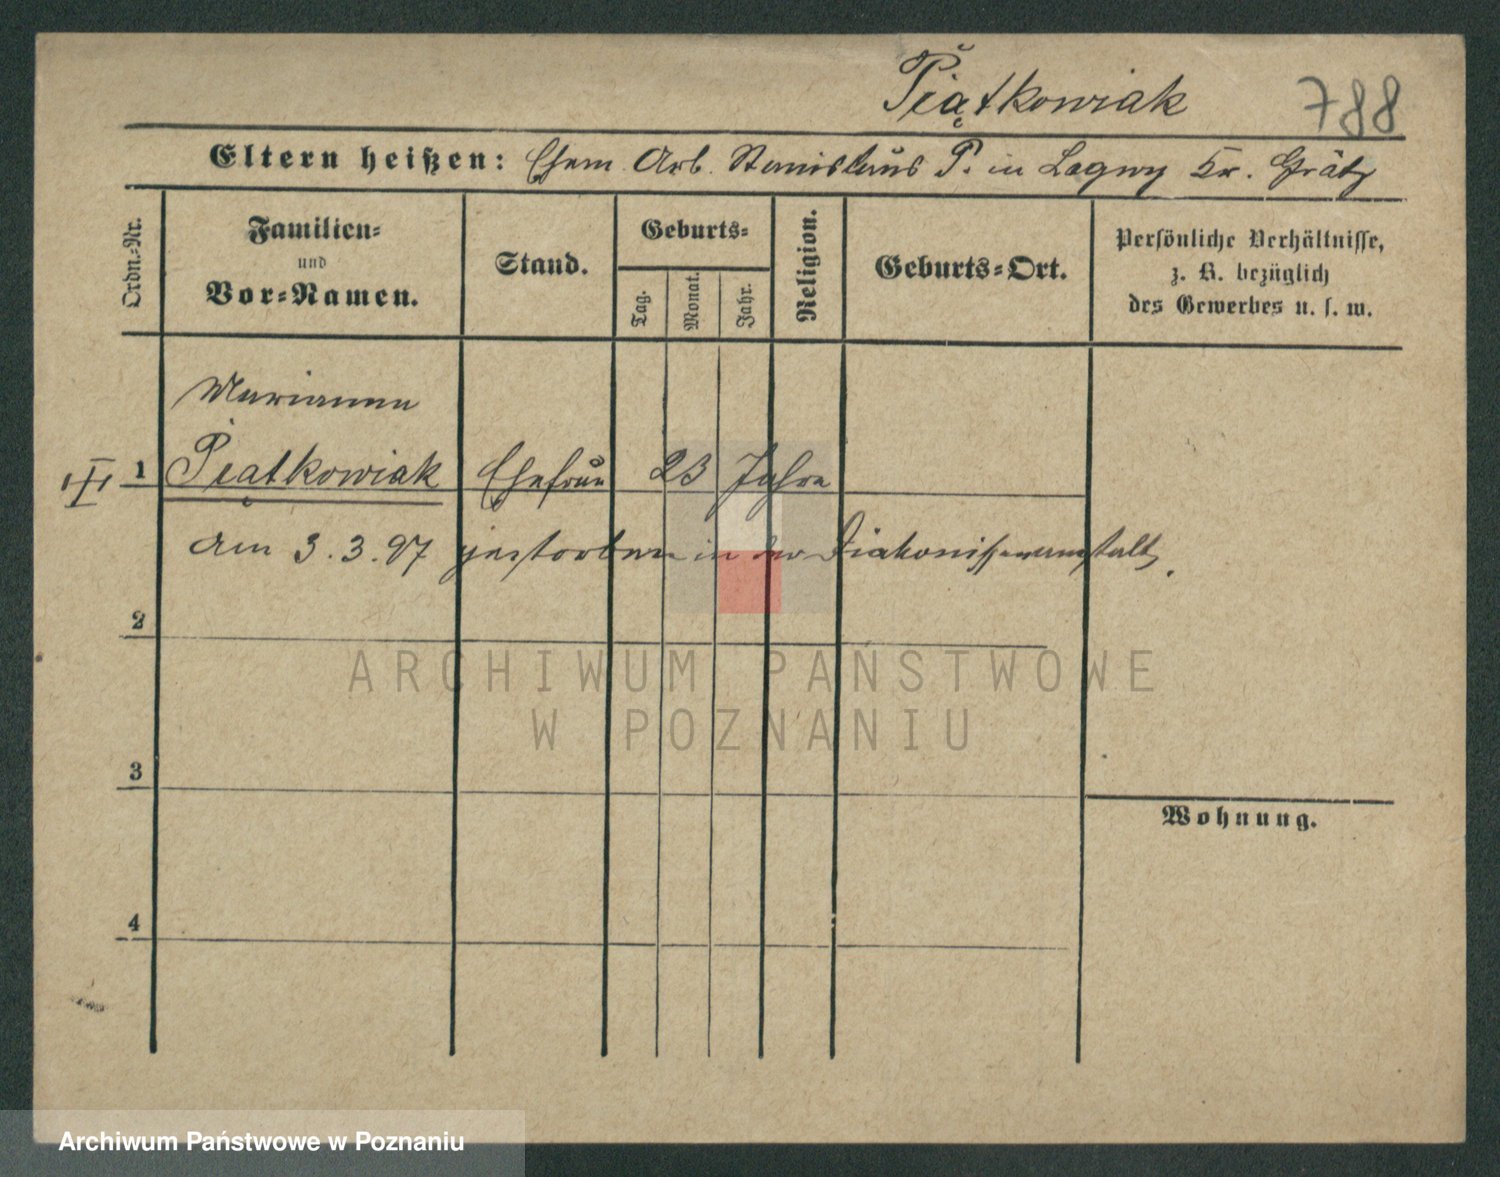 Piątkowiak 788
Eltern heißen: Ehem. Arb. Stanislaus P. in Lagwy Kr. Grätz
Ordn.-Nr.
Familien-
und
Vor-Namen.
Stand.
Geburts-
Tag.
Monat.
Jahr.
Religion.
Geburts-Ort.
Persönliche Verhältnisse,
z. B. bezüglich
des Gewerbes u. s. w.
Marianna
III 1 Piątkowiak Ehefrau 23 Jahre
am 3.3.97 gestorben in der Diakonissenanstalt.
2
3
Wohnung.
4
ARCHIWUM PAŃSTWOWE
W POZNANIU
Archiwum Państwowe w Poznaniu